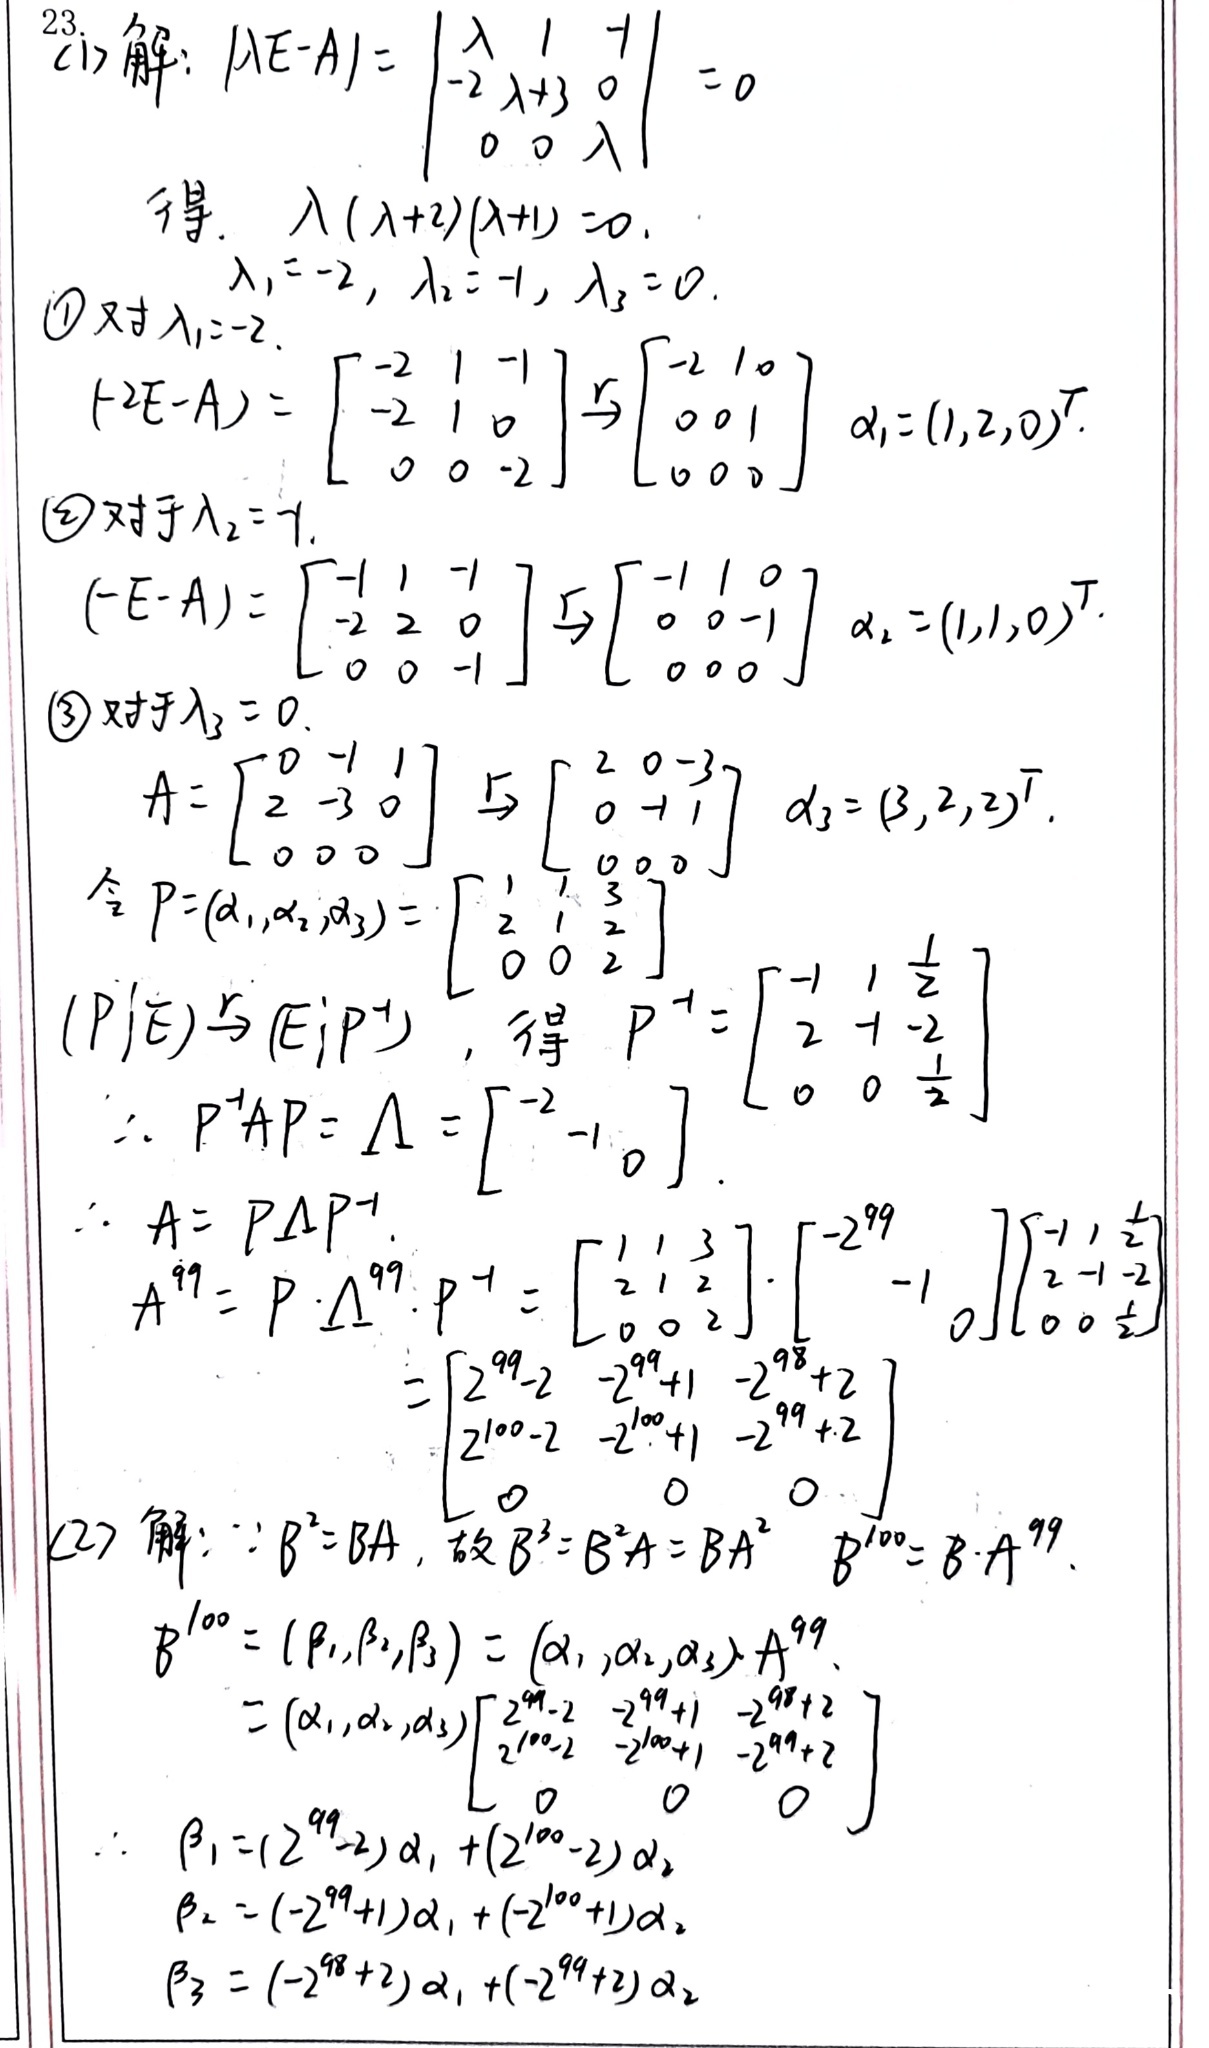 23.
(1) 解: |λE-A| = | λ 1 -1 ; -2 λ+3 0 ; 0 0 λ | = 0
得. λ(λ+2)(λ+1)=0.
λ₁=-2, λ₂=-1, λ₃=0.
① 对λ₁=-2.
(-2E-A) = [ -2 1 -1 ; -2 1 0 ; 0 0 -2 ] r→ [ -2 1 0 ; 0 0 1 ; 0 0 0 ] α₁=(1,2,0)ᵀ.
② 对于λ₂=-1.
(-E-A) = [ -1 1 -1 ; -2 2 0 ; 0 0 -1 ] r→ [ -1 1 0 ; 0 0 -1 ; 0 0 0 ] α₂=(1,1,0)ᵀ.
③ 对于λ₃=0.
A = [ 0 -1 1 ; 2 -3 0 ; 0 0 0 ] r→ [ 2 0 -3 ; 0 -1 1 ; 0 0 0 ] α₃=(3,2,2)ᵀ.
令 P=(α₁,α₂,α₃) = [ 1 1 3 ; 2 1 2 ; 0 0 2 ]
(P¦E) r→ (E¦P⁻¹), 得 P⁻¹ = [ -1 1 1/2 ; 2 -1 -2 ; 0 0 1/2 ]
∴ P⁻¹AP = Λ = [ -2 -1 0 ].
∴ A = PΛP⁻¹.
A⁹⁹ = P·Λ⁹⁹·P⁻¹ = [ 1 1 3 ; 2 1 2 ; 0 0 2 ]·[ -2⁹⁹ -1 0 ][ -1 1 1/2 ; 2 -1 -2 ; 0 0 1/2 ]
= [ 2⁹⁹-2 -2⁹⁹+1 -2⁹⁸+2 ; 2¹⁰⁰-2 -2¹⁰⁰+1 -2⁹⁹+2 ; 0 0 0 ]
(2) 解: ∵ B²=BA, 故B³=B²A=BA² B¹⁰⁰=B·A⁹⁹.
B¹⁰⁰ = (β₁,β₂,β₃) = (α₁,α₂,α₃)·A⁹⁹.
= (α₁,α₂,α₃)[ 2⁹⁹-2 -2⁹⁹+1 -2⁹⁸+2 ; 2¹⁰⁰-2 -2¹⁰⁰+1 -2⁹⁹+2 ; 0 0 0 ]
∴ β₁=(2⁹⁹-2)α₁+(2¹⁰⁰-2)α₂
β₂=(-2⁹⁹+1)α₁+(-2¹⁰⁰+1)α₂
β₃=(-2⁹⁸+2)α₁+(-2⁹⁹+2)α₂